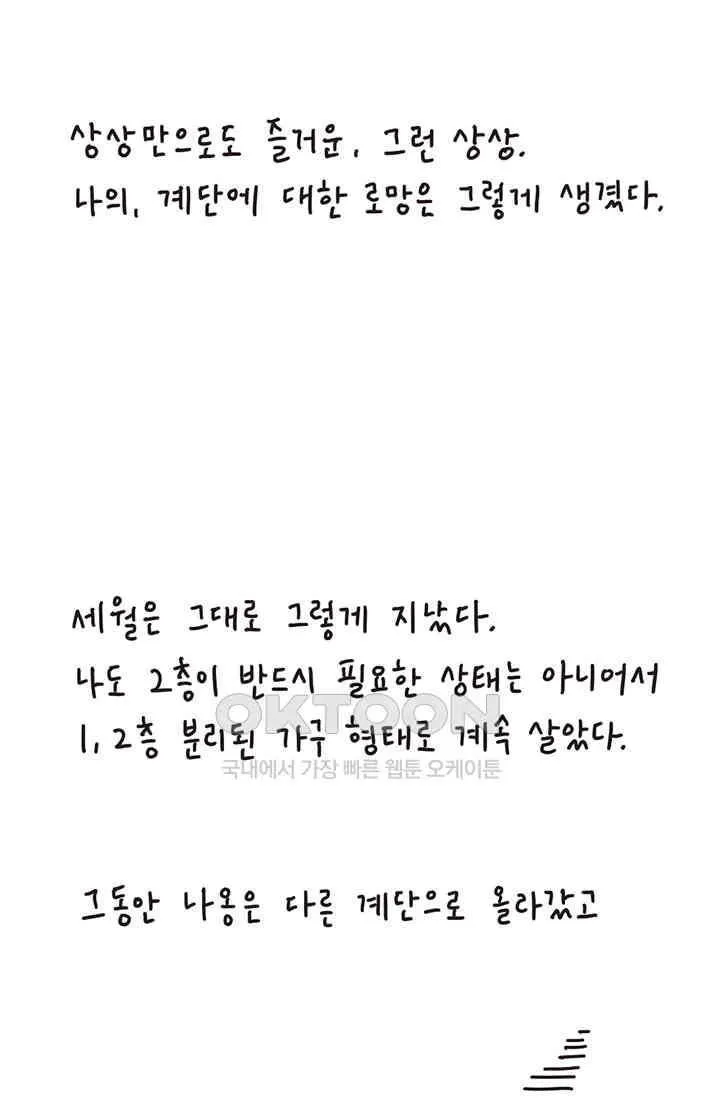 상상만으로도 즐거운, 그런 상상.
나의, 계단에 대한 로망은 그렇게 생겼다.
세월은 그대로 그렇게 지났다.
나도 2층이 반드시 필요한 상태는 아니어서
OKTOON
1, 2층 분리된 가구 형태로 계속 살았다.
국내에서 가장 빠른 웹툰 오케이툰
그동안 나옹은 다른 계단으로 올라갔고